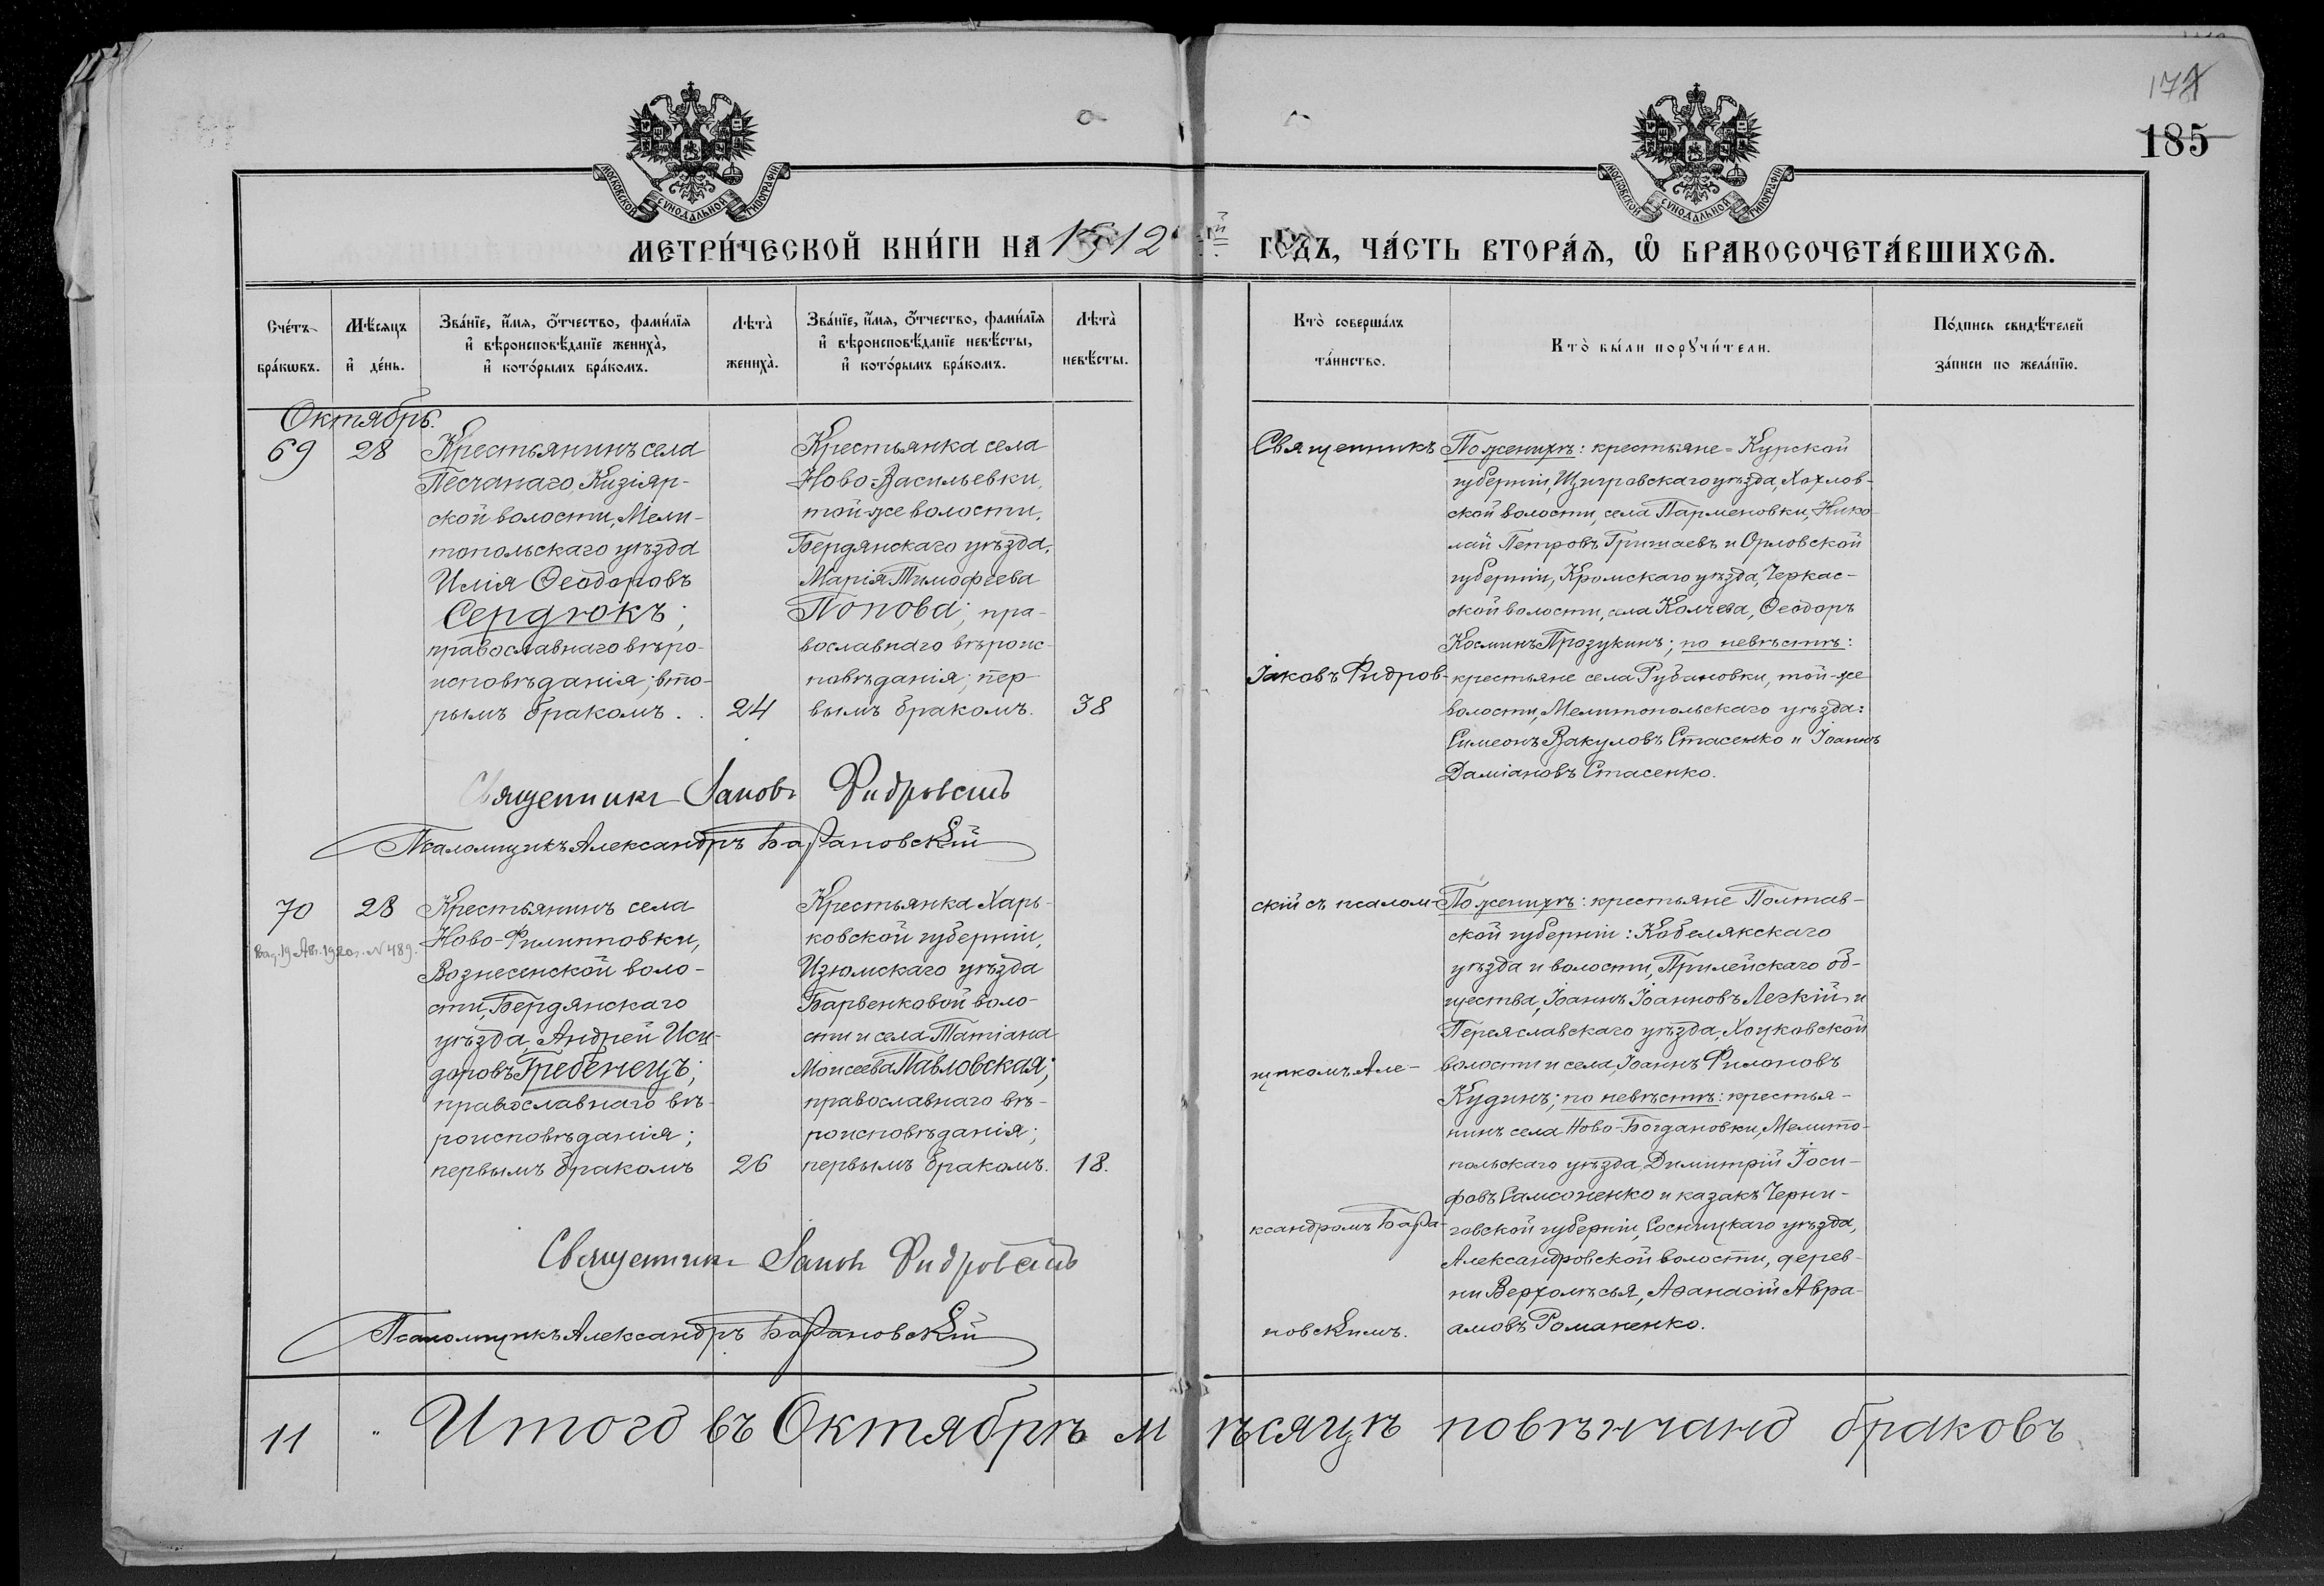 178
185
МОСКОВСКОЙ СѴНОДАЛЬНОЙ ТИПОГРАФІИ
МОСКОВСКОЙ СѴНОДАЛЬНОЙ ТИПОГРАФІИ
МЕТРИ́ЧЕСКОЙ КНИ́ГИ НА 1912 й ГОДЪ, ЧА́СТЬ ВТОРА́Ѧ, Ѿ БРАКОСОЧЕТА́ВШИХСѦ.
Сче́тъ бра́кѡвъ.
Мѣ́сяцъ и҆ де́нь.
Зва́нїе, и҆́мя, ѻ҆́тчество, фами́лїя
и҆ вѣроисповѣ́данїе жениха̀,
и҆ кото́рымъ бра́комъ.
Лѣта̀ жениха̀.
Зва́нїе, и҆́мя, ѻ҆́тчество, фами́лїя
и҆ вѣроисповѣ́данїе невѣ́сты,
и҆ кото́рымъ бра́комъ.
Лѣта̀ невѣ́сты.
Кто̀ соверша́лъ та́инство.
Кто̀ бы́ли порꙋчи́тели.
По́дпись свидѣ́телей
за́писи по жела́нїю.
Октябрь.
69
28
Крестьянинъ села
Песчанаго, Кизіяр-
ской волости, Мели-
топольскаго уѣзда
Илія Ѳеодоровъ
Сердюкъ;
православнаго вѣро-
исповѣданія; вто-
рымъ бракомъ . .
24
Крестьянка села
Ново-Васильевки,
той-же волости,
Бердянскаго уѣзда,
Марія Тимофеева
Попова; пра-
вославнаго вѣроис-
повѣданія; пер-
вымъ бракомъ.
38
Священникъ
Іаковъ Фидров-
По женихѣ: крестьяне = Курской
губерніи, Щигровскаго уѣзда, Хохлов-
ской волости, села Парменовки, Нико-
лай Петровъ Гришаевъ и Орловской
губерніи, Кромскаго уѣзда, Черкас-
ской волости, села Колчева, Ѳеодоръ
Косминъ Прозукинъ; по невѣстѣ:
крестьяне села Рубановки, той-же
волости, Мелитопольскаго уѣзда:
Симеонъ Вакуловъ Стасенко и Іоаннъ
Даміановъ Стасенко.
Священникъ Іаковъ Фидровскій
Псаломщикъ Александръ Барановскій
70
28
Выд. 19 Авг. 1920 г. N 489.
Крестьянинъ села
Ново-Филипповки,
Вознесенской воло-
сти, Бердянскаго
уѣзда, Андрей Иси-
доровъ Гребенецъ;
православнаго вѣ-
роисповѣданія;
первымъ бракомъ
26
Крестьянка Харь-
ковской губерніи,
Изюмскаго уѣзда
Барвенковой воло-
сти и села Татіана
Моисеева Павловская;
православнаго вѣ-
роисповѣданія;
первымъ бракомъ.
18.
скій съ псалом-
щикомъ Але-
ксандромъ Бара-
новскимъ.
По женихѣ: крестьяне Полтав-
ской губерніи: Кобелякскаго
уѣзда и волости, Прилейскаго об-
щества, Іоаннъ Іоанновъ Легкій и
Переяславскаго уѣзда, Хоцковской
волости и села, Іоаннъ Филоновъ
Кудинъ; по невѣстѣ: крестья-
нинъ села Ново-Богдановки, Мелито-
польскаго уѣзда, Димитрій Іоси-
фовъ Самсоненко и казакъ Черни-
говской губерніи, Сосницкаго уѣзда,
Александровской волости, дерев-
ни Верхолѣсья, Аѳанасій Авра-
амовъ Романенко.
Священникъ Іаковъ Фидровскій
Псаломщикъ Александръ Барановскій
11 " Итого въ Октябрѣ мѣсяцѣ повѣнчано браковъ